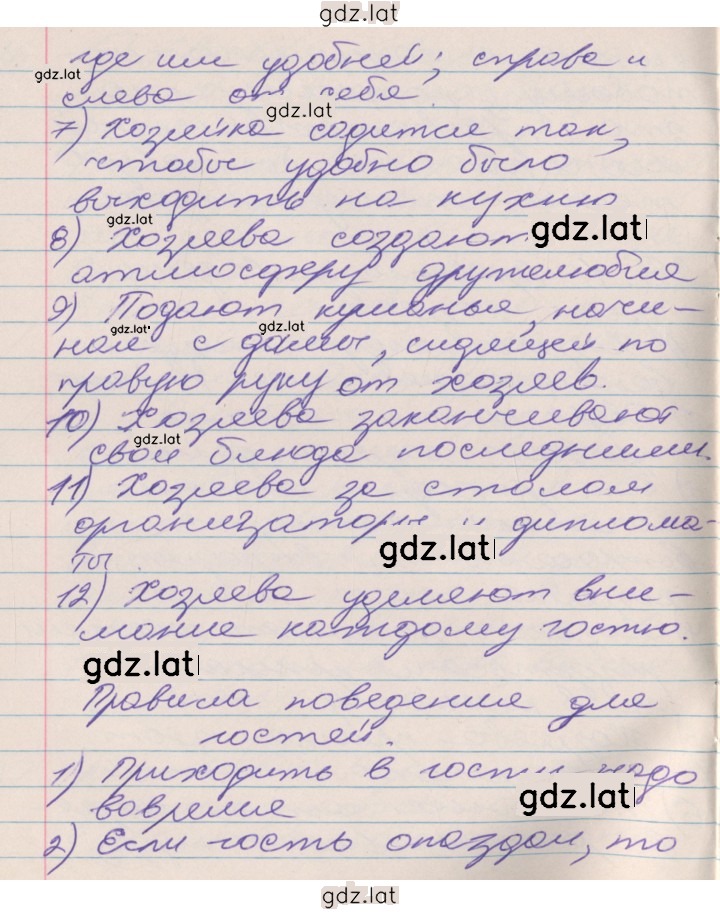 gdz.lat
где им удобней; справа и
gdz.lat
слева от себя.
gdz.lat
7) Хозяйка садится так,
чтобы удобно было
выходить на кухню
gdz.lat
gdz.lat
8) Хозяева создают
атмосферу дружелюбия
9) Подают кушанья, начи-
gdz.lat
gdz.lat
ная с дамы, сидящей по
правую руку от хозяев.
10) Хозяева заканчивают
gdz.lat
свои блюда последними.
11) Хозяева за столом
организаторы и диплома-
gdz.lat
ты.
12) Хозяева уделяют вни-
мание каждому гостю.
gdz.lat
Правила поведения для
гостей.
1) Приходить в гости надо
gdz.lat
вовремя
2) Если гость опоздал, то
gdz.lat